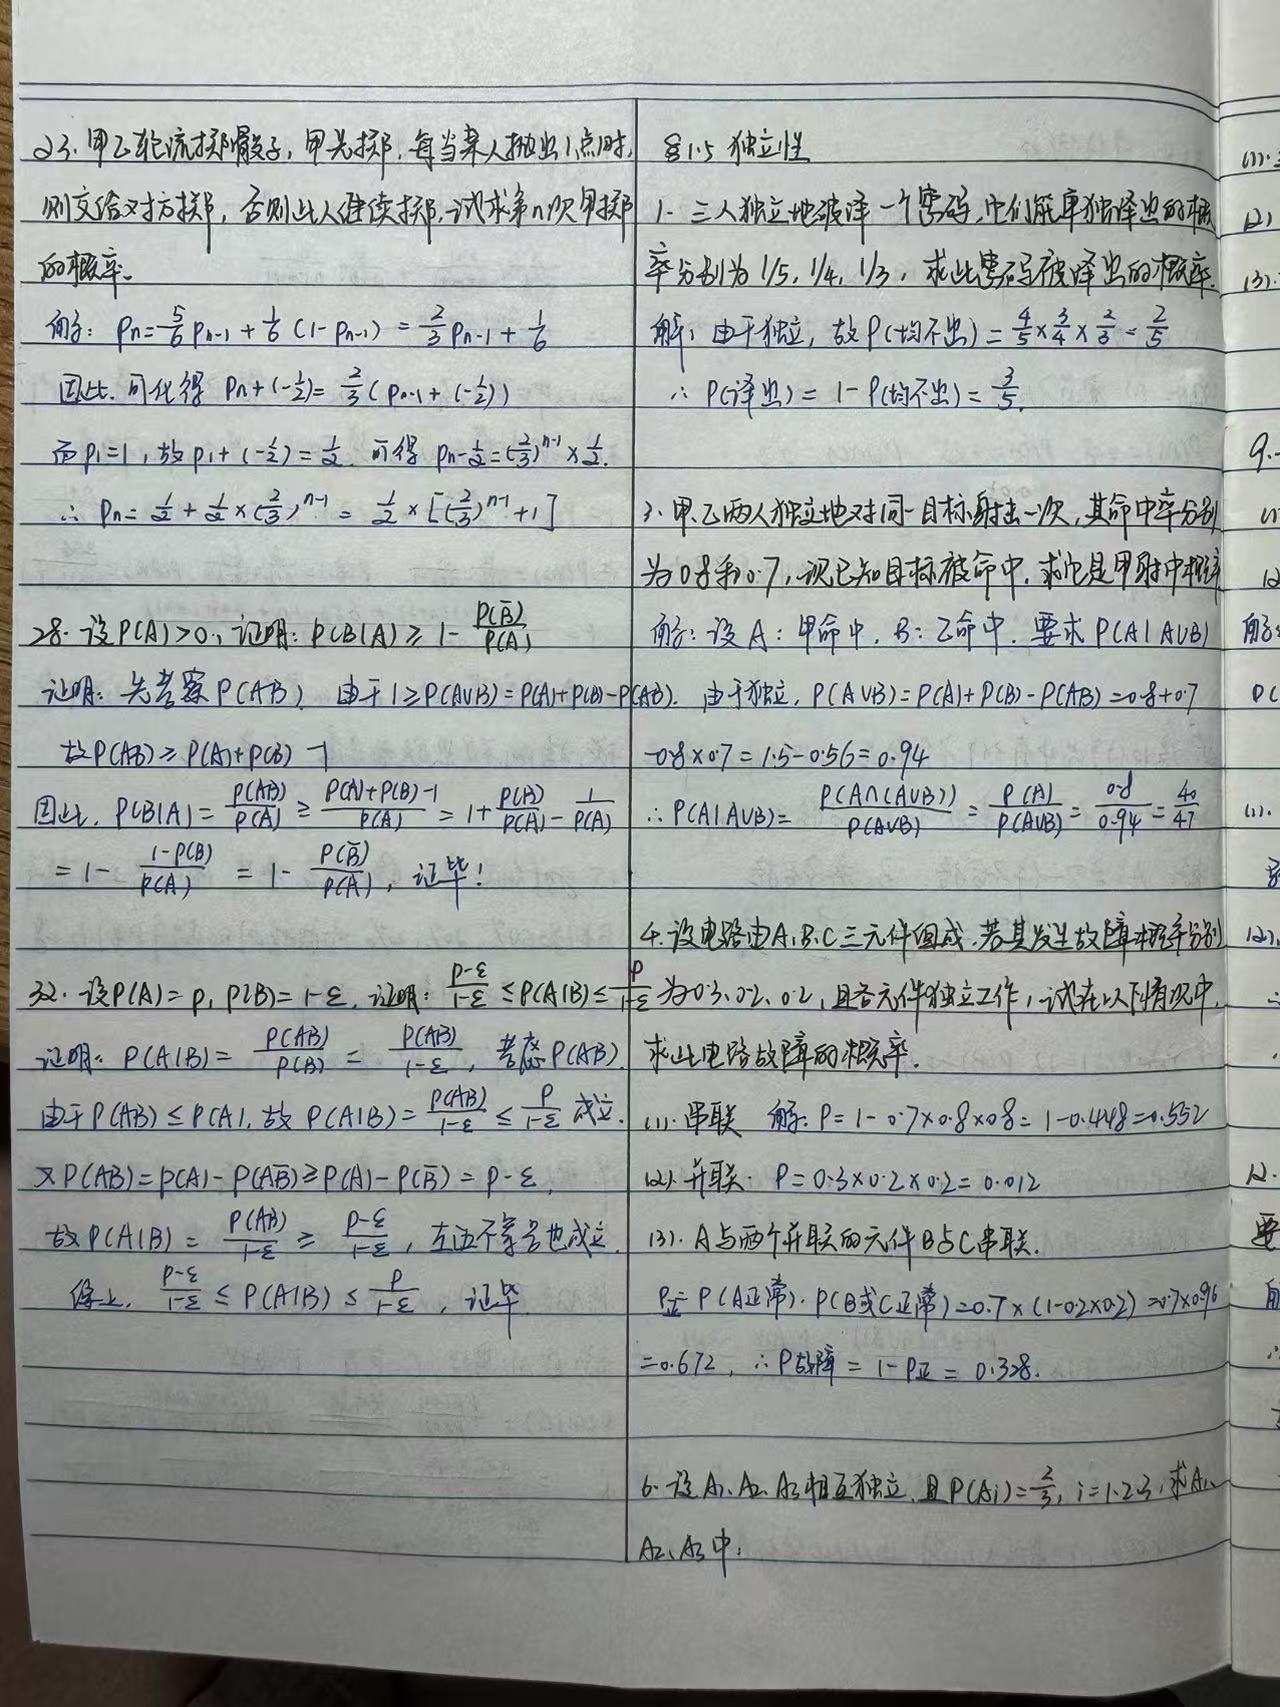 23. 甲乙轮流掷骰子，甲先掷，每当某人抛出1点时，
则交给对方掷，否则此人继续掷，试求第n次甲掷
的概率。
解: Pn=5/6 Pn-1 + 1/6 (1-Pn-1) = 2/3 Pn-1 + 1/6
因此，可化得 Pn+(-1/2)= 2/3 (Pn-1+(-1/2))
而P1=1, 故P1+(-1/2)=1/2. 可得 Pn-1/2=(2/3)^(n-1)×1/2.
∴ Pn= 1/2 + 1/2×(2/3)^(n-1) = 1/2 × [(2/3)^(n-1)+1]
28. 设P(A)>0, 证明: P(B|A) ≥ 1- P(B̅)/P(A)
证明: 先考察P(AB), 由于1≥P(A∪B)=P(A)+P(B)-P(AB).
故P(AB)≥P(A)+P(B)-1
因此, P(B|A)= P(AB)/P(A) ≥ (P(A)+P(B)-1)/P(A) = 1+ P(B)/P(A) - 1/P(A)
= 1- (1-P(B))/P(A) = 1- P(B̅)/P(A), 证毕!
32. 设P(A)=p, P(B)=1-ε, 证明: (p-ε)/(1-ε) ≤P(A|B)≤ p/(1-ε)
证明: P(A|B)= P(AB)/P(B) = P(AB)/(1-ε), 考虑P(AB).
由于P(AB)≤P(A), 故 P(A|B)= P(AB)/(1-ε) ≤ p/(1-ε) 成立.
又P(AB)=P(A)-P(AB̅)≥P(A)-P(B̅)=p-ε,
故P(A|B)= P(AB)/(1-ε) ≥ (p-ε)/(1-ε), 左边不等号也成立.
综上, (p-ε)/(1-ε) ≤ P(A|B) ≤ p/(1-ε), 证毕
§1.5 独立性
1. 三人独立地破译一个密码, 他们能单独译出的概
率分别为 1/5, 1/4, 1/3, 求此密码被译出的概率.
解: 由于独立, 故P(均不出)= 4/5×3/4×2/3=2/5
∴ P(译出)= 1-P(均不出)= 3/5.
3. 甲、乙两人独立地对同一目标射击一次, 其命中率分别
为0.8和0.7, 现已知目标被命中, 求它是甲射中概率
解: 设A: 甲命中, B: 乙命中, 要求P(A|A∪B)
由于独立, P(A∪B)=P(A)+P(B)-P(AB)=0.8+0.7
-0.8×0.7=1.5-0.56=0.94
∴ P(A|A∪B)= P(A∩(A∪B))/P(A∪B) = P(A)/P(A∪B) = 0.8/0.94 = 40/47
4. 设电路由A、B、C三元件组成, 若其发生故障概率分别
为0.3、0.2、0.2, 且各元件独立工作, 试在以下情况中,
求此电路故障的概率.
(1). 串联 解: P=1-0.7×0.8×0.8=1-0.448=0.552
(2). 并联. P=0.3×0.2×0.2=0.012
(3). A与两个并联的元件B与C串联.
P正=P(A正常)·P(B或C正常)=0.7×(1-0.2×0.2)=0.7×0.96
=0.672, ∴P故障=1-P正=0.328.
6. 设A1、A2、A3相互独立, 且P(Ai)=2/3, i=1.2.3, 求A1、
A2、A3中:
(1).
(2)
(3).
9.
12.
要